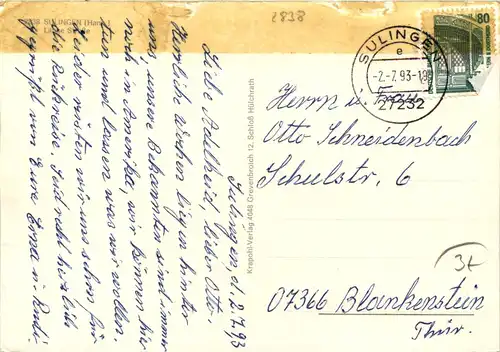 2838 SULINGEN (Hann.)
Lange Straße
2838
Sulingen, d. 2.7.93
Liebe Adelheid, lieber Otto.
Herrliche Wochen liegen hinter
uns, unsere Bekannten sind immer
noch in Amerika, wir können hier
tun und lassen was wir wollen.
Leider müßen wir uns schon für
die Rückreise. Seid recht herzlich
gegrüßt von Eure Erna u. Rudi.
Krapohl-Verlag 4048 Grevenbroich 12, Schloß Hülchrath
SULINGEN
e
-2.-7.93-18
27232
80
Herrn u. Frau
Otto Schneidenbach
Schulstr. 6
07366 Blankenstein
Thür.